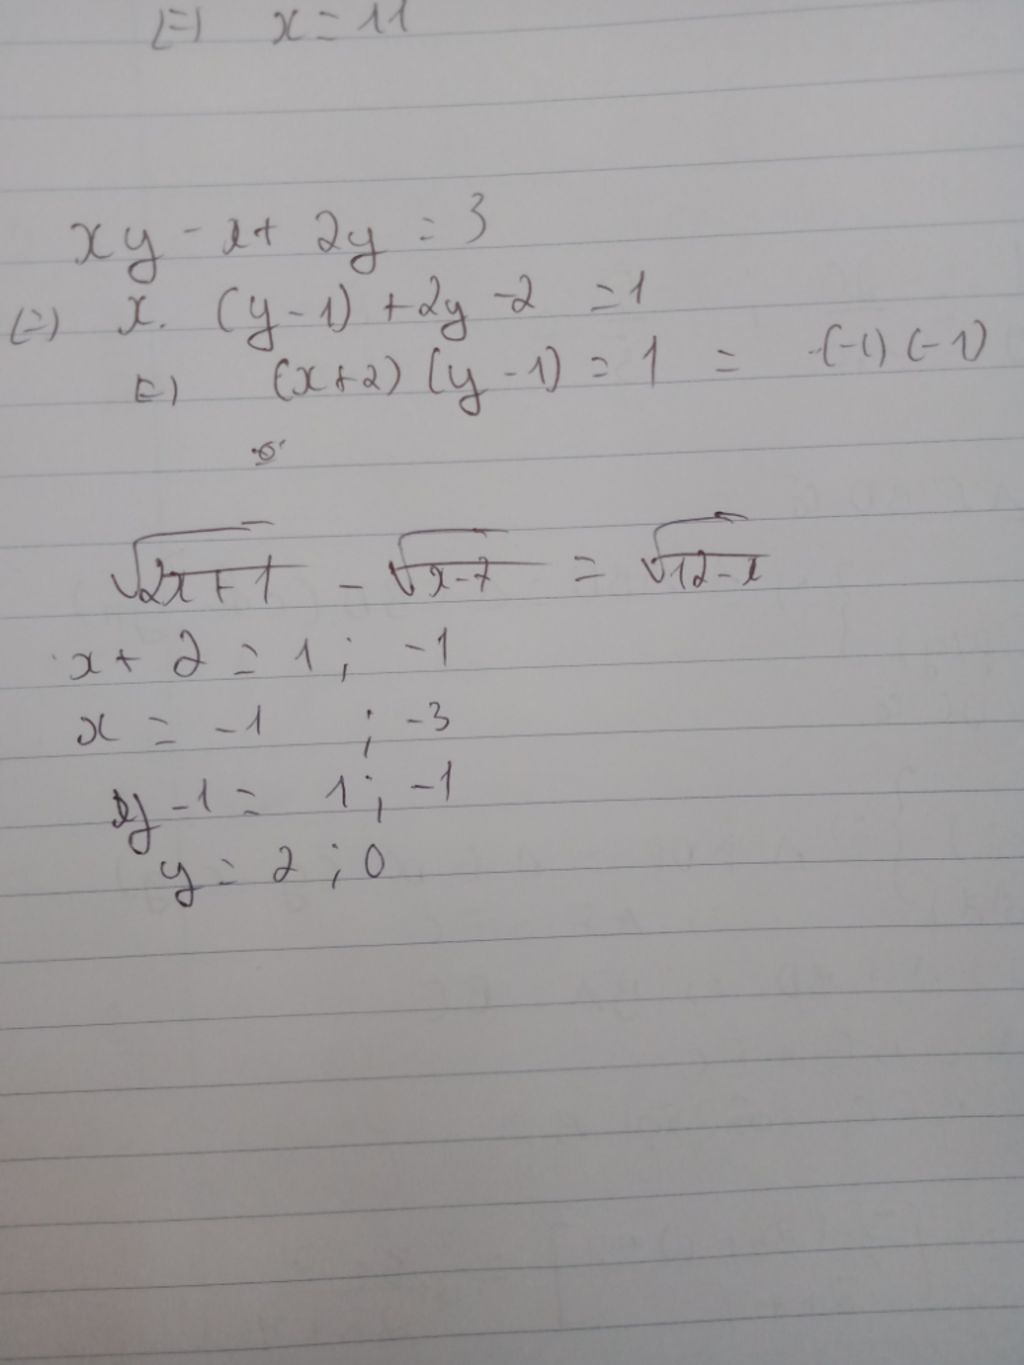 (=) x = 11
xy - x + 2y = 3
(=) x. (y - 1) + 2y - 2 = 1
(=) (x + 2) (y - 1) = 1 = (-1) (-1)
√2x + 1 - √x - 7 = √12 - x
x + 2 = 1 ; -1
x = -1 ; -3
y - 1 = 1 ; -1
y = 2 ; 0